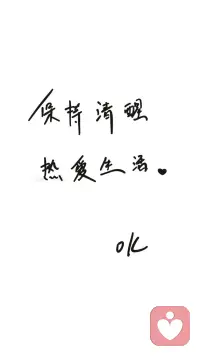 保持清醒
热爱生活❤
OK